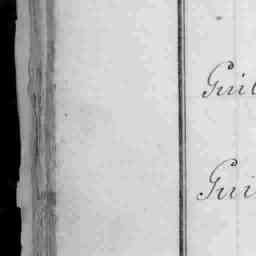 Guil
Gui